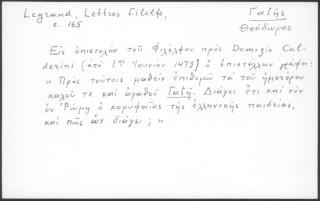 Legrand, Lettres Filelfe,
σ. 165
Γαζῆς
Θεόδωρος
Εἰς ἐπιστολὴν τοῦ Φιλέλφου πρὸς Domizio Cal-
derini (ἀπὸ 1ης Ἰουνίου 1473) ὁ ἐπιστέλλων γράφει:
« Πρὸς τούτοις μαθεῖν ἐπιθυμῶ τὰ τοῦ ἡμετέρου
καλοῦ τε καὶ ἀγαθοῦ Γαζῆ. Διάγει ἔτι καὶ νῦν
ἐν Ῥώμῃ ὁ κορυφαῖος τῆς ἑλληνικῆς παιδείας,
καὶ πῶς διάγει; »